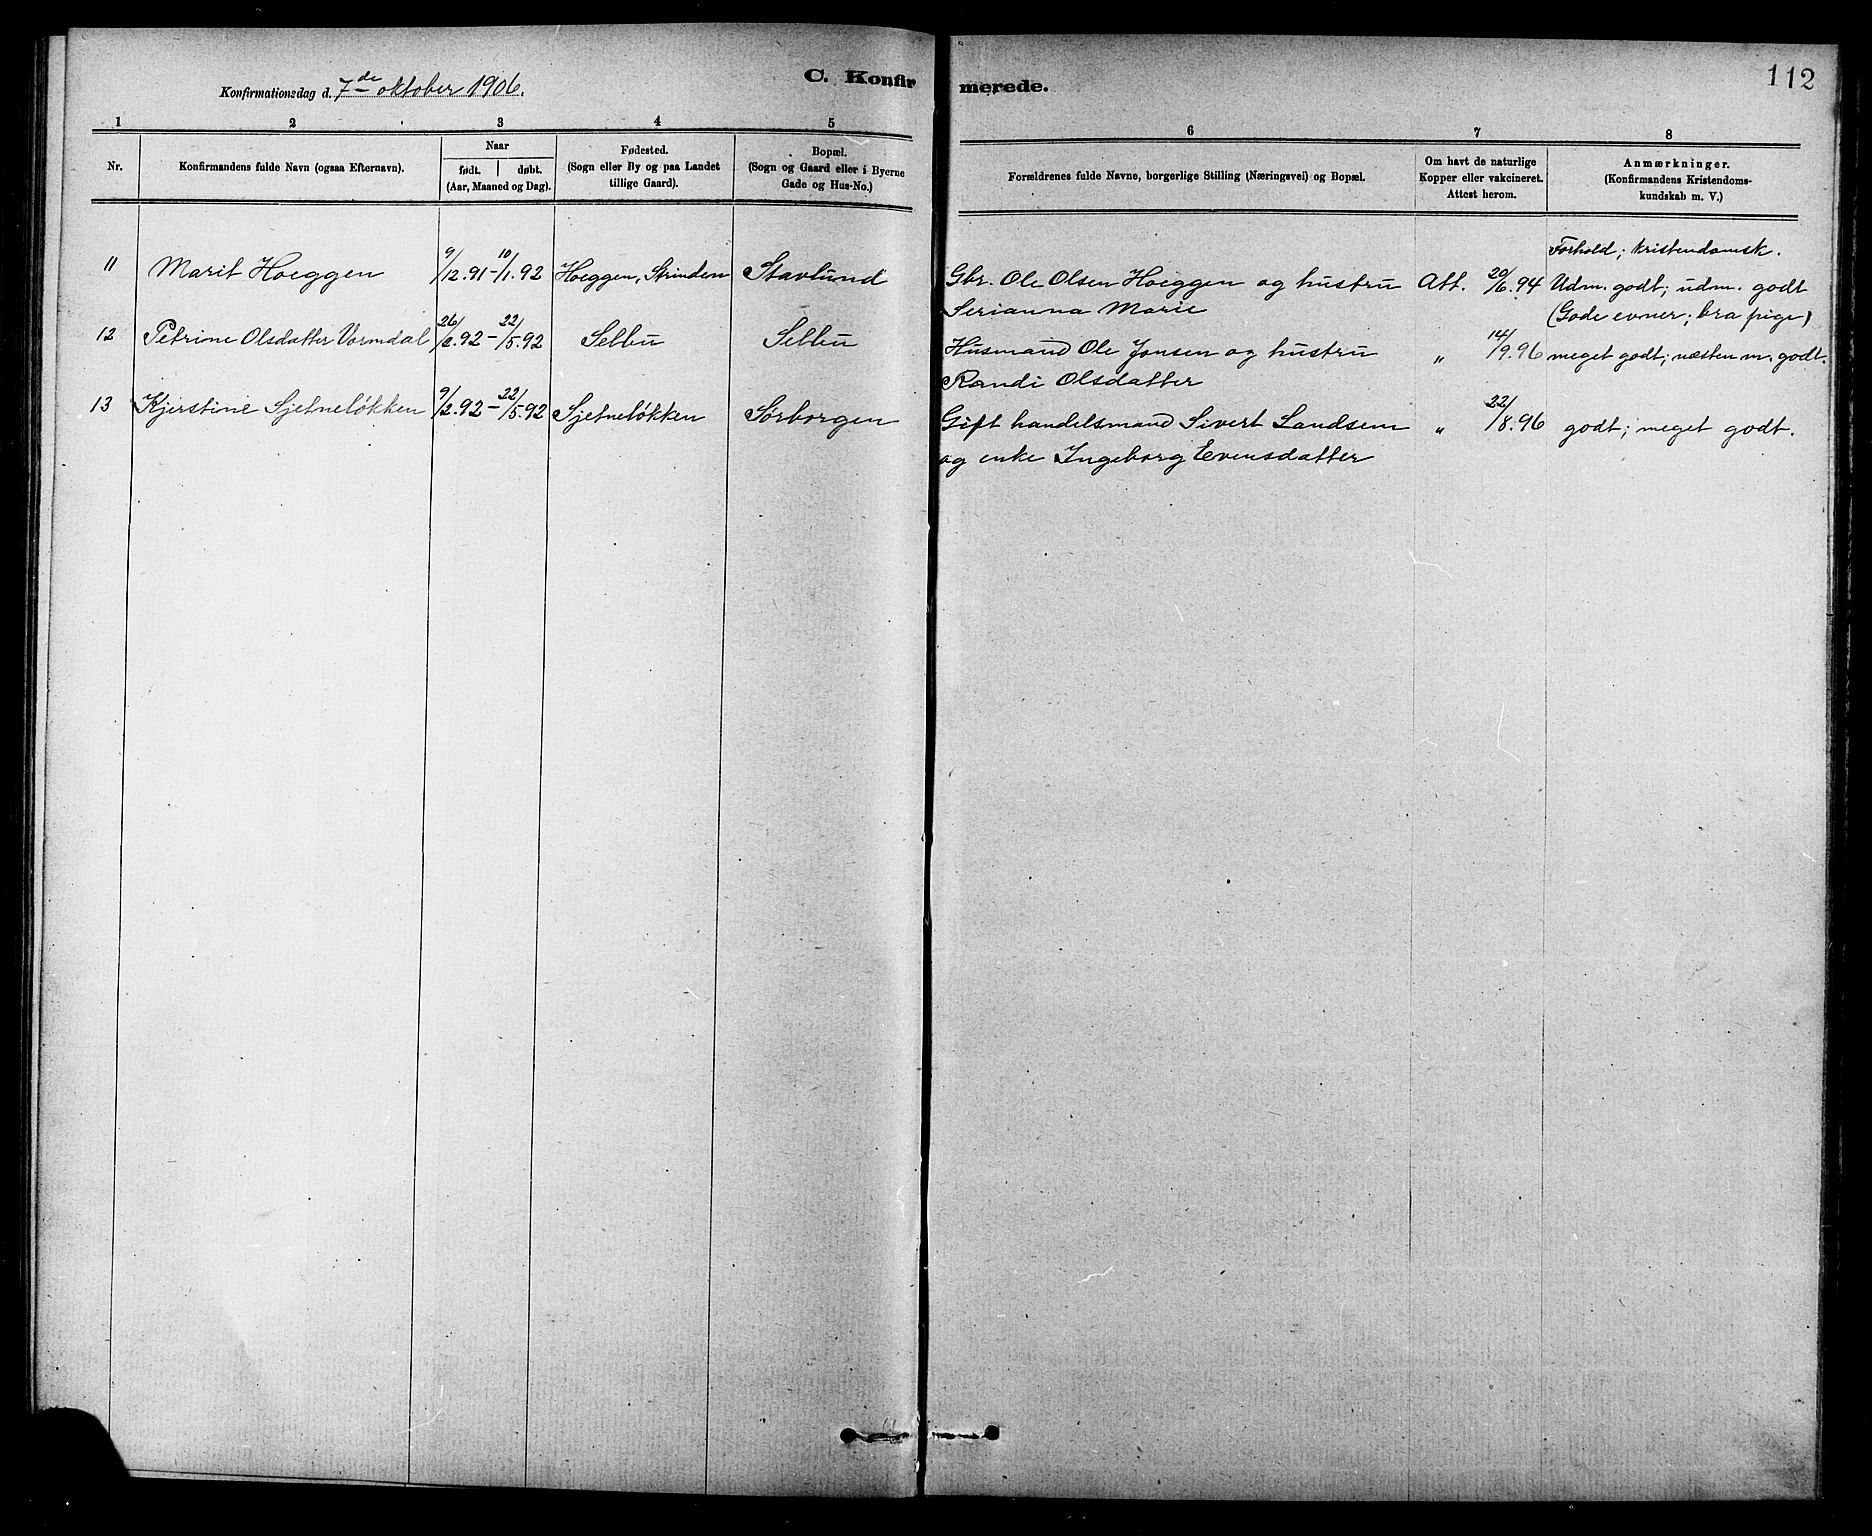 Konfirmationsdag d. 7de oktober 1906.
C. Konfir
merede.
112
1 2 3 4 5 6 7 8
Nr.
Konfirmandens fulde Navn (ogsaa Efternavn).
Naar
født. døbt.
(Aar, Maaned og Dag).
Fødested.
(Sogn eller By og paa Landet
tillige Gaard).
Bopæl.
(Sogn og Gaard eller i Byerne
Gade og Hus-No.)
Forældrenes fulde Navne, borgerlige Stilling (Næringsvei) og Bopæl.
Om havt de naturlige
Kopper eller vakcineret.
Attest herom.
Anmærkninger.
(Konfirmandens Kristendoms-
kundskab m. V.)
Forhold; kristendomsk.
11 Marit Hoeggen 9/12.91 - 10/1.92 Hoeggen, Strinden Stavlund Gbr. Ole Olsen Hoeggen og hustru Att. 20/6.94 Udm. godt; udm. godt
Serianna Marie (Gode evner; bra pige)
12 Petrine Olsdatter Vormdal 26/2.92 - 22/5.92 Selbu Selbu Husmand Ole Jonsen og hustru " 14/9.96 meget godt; næsten m. godt.
Randi Olsdatter
13 Kjerstine Sjetneløkken 9/2.92 - 22/5.92 Sjetneløkken Sørborgen Gift handelsmand Sivert Landsem " 22/8.96 godt; meget godt.
og enke Ingeborg Evensdatter